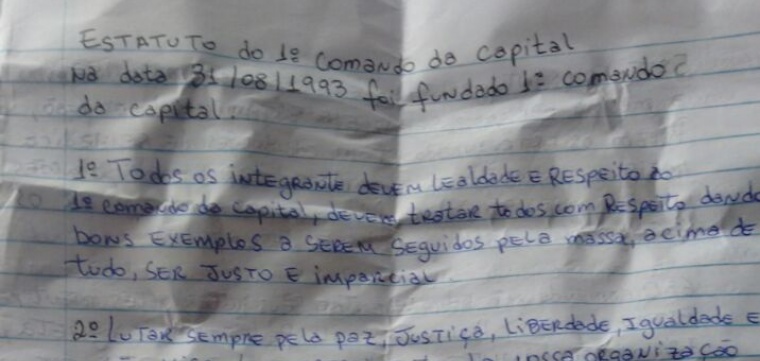 ESTATUTO do 1º comando da capital
Na data 31/08/1993 foi fundado 1º comando
da capital.
1º Todos os integrante devem lealdade e respeito ao
1º comando da capital, devem tratar todos com respeito dando
bons exemplos a serem seguidos pela massa, acima de
tudo, ser justo e imparcial
2º Lutar sempre pela paz, justiça, liberdade, igualdade e
nossa organização